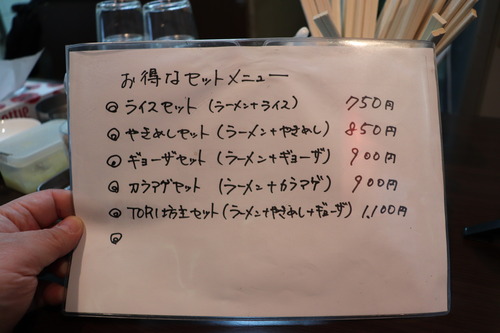 お得なセットメニュー
◎ ライスセット (ラーメン+ライス) 750円
◎ やきめしセット (ラーメン+やきめし) 850円
◎ ギョーザセット (ラーメン+ギョーザ) 900円
◎ カラアゲセット (ラーメン+カラアゲ) 900円
◎ TORI坊主セット (ラーメン+やきめし+ギョーザ) 1,100円
◎